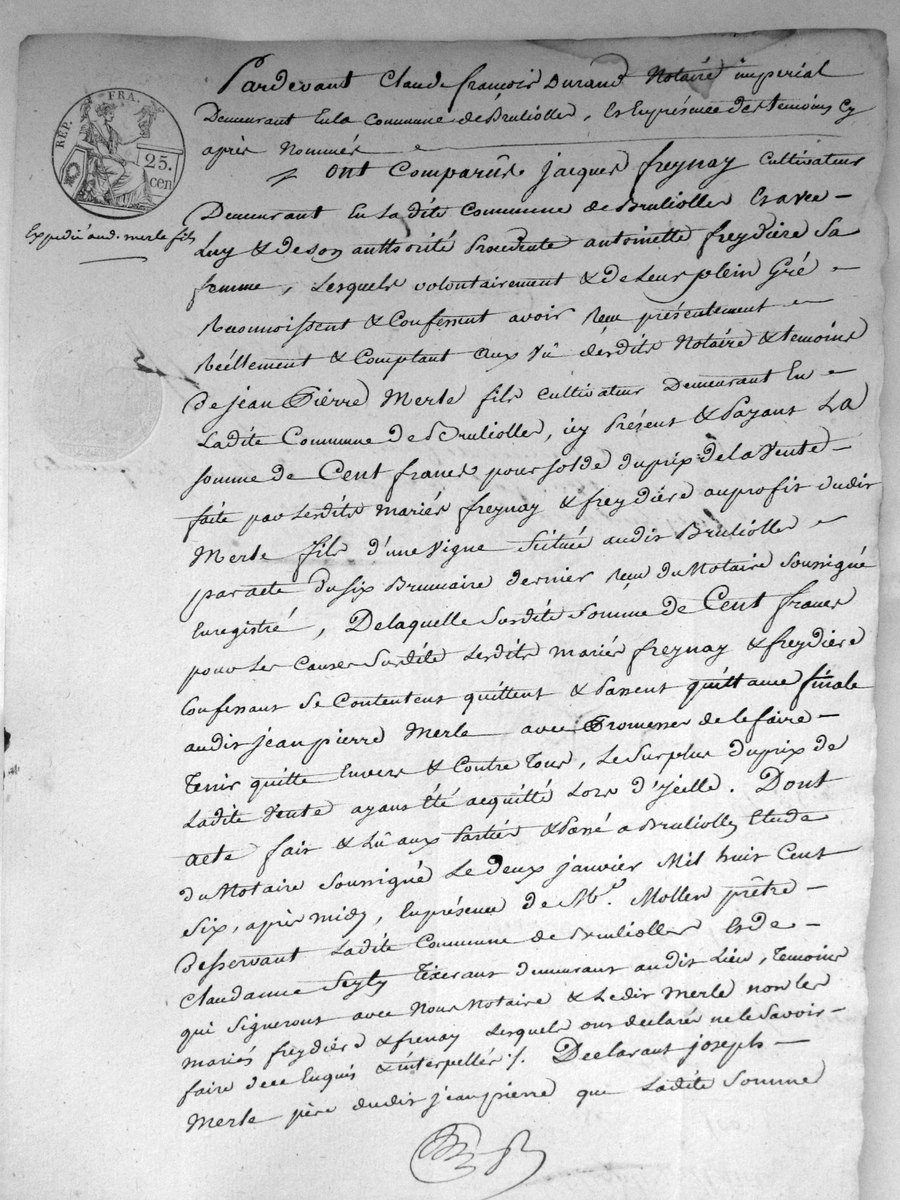 REP. FRA.
25.
cen
Expedié aud. merle fils
Pardevant Claude françois Durand Notaire imperial
Demeurant En la Commune de Brulioller, Et Enprésence des temoins Cy
après Nommés
ont Comparûs jacques freynay Cultivateur
Demeurant En Ladite Commune de Brulioller Et avec
Luy & deson authorité Procedente antoinette freydière Sa
femme, Lesquels volontairement & de Leur plein Gré
Reconnoissent & Confessent avoir Reçu présentement
Réellement & Comptant aux vû desdits Notaire & temoins
de jean Pierre Merle fils Cultivateur Demeurant En
Ladite Commune de Brulioller, icy Présent & Payant La
somme de Cent francs pour solde duprix de la Vente
faite par Lesdits mariés freynay & freydière auprofit dudit
Merle fils d'une vigne Scituée audit Brulioller
par acte du six Brumaire dernier Reçu du Notaire Soussigné
Enregistré, De laquelle Susdite Somme de Cent francs
pour Les Causes Susdite Lesdits mariés freynay & freydière
Confessant Se Contentent quittent & Passent quittance finale
audit jean pierre Merle avec Promesses de le faire
Tenir quitte Envers & Contre Tous, Le Surplus duprix de
Ladite Vente ayant été acquitté Lors d'Jcelle. Dont
acte fait & Lû aux Parties & Passé a Brulioller Etude
du Notaire Soussigné Le deux janvier Mil huit Cent
Six, après midy, Enprésence de Mr. Mollen prêtre
Desservant Ladite Commune de Brulioller Et de
Claudanne Seyty Tixerant demeurant audit Lieu, Temoins
qui Signeront avec Nous Notaire & Ledit Merle non les
mariés freydière & frenay Lesquels ont déclarés ne le Savoir
faire dece Enquis & interpellés ./. Declarant joseph
Merle père dudit jean pierre que Ladite Somme